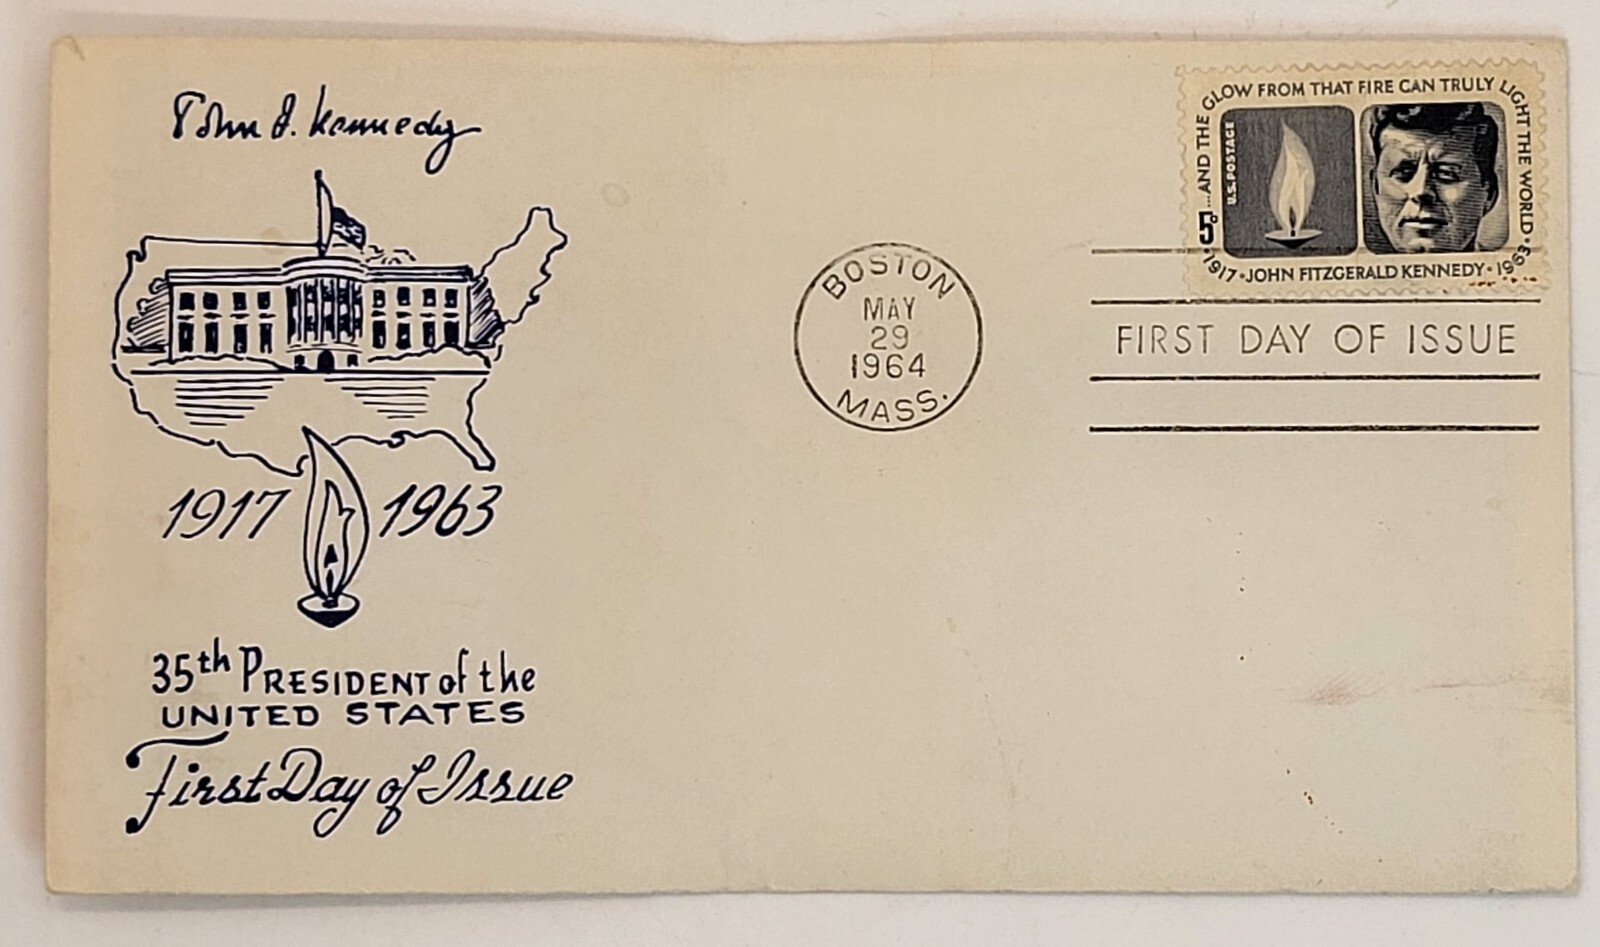 John F. Kennedy
1917 1963
35th PRESIDENT of the
UNITED STATES
First Day of Issue
BOSTON
MAY
29
1964
MASS.
...AND THE GLOW FROM THAT FIRE CAN TRULY LIGHT THE WORLD
U.S. POSTAGE
5c
1917 • JOHN FITZGERALD KENNEDY • 1963
FIRST DAY OF ISSUE